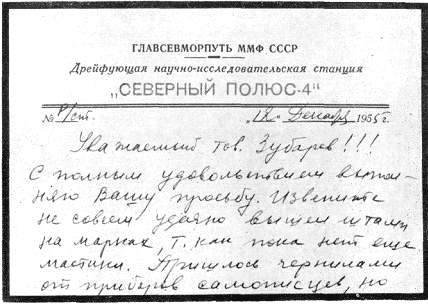 ГЛАВСЕВМОРПУТЬ ММФ СССР
Дрейфующая научно-исследовательская станция
„СЕВЕРНЫЙ ПОЛЮС-4"
№ „12" Декабря 1955 г.
Уважаемый тов. Зубарев!!!
С полным удовольствием выпол-
няю Вашу просьбу. Извените
не совсем удачно вышел штамп
на марках, т. как пока нет еще
мастики. Пришлось чернилами
от приборов самописцев, но